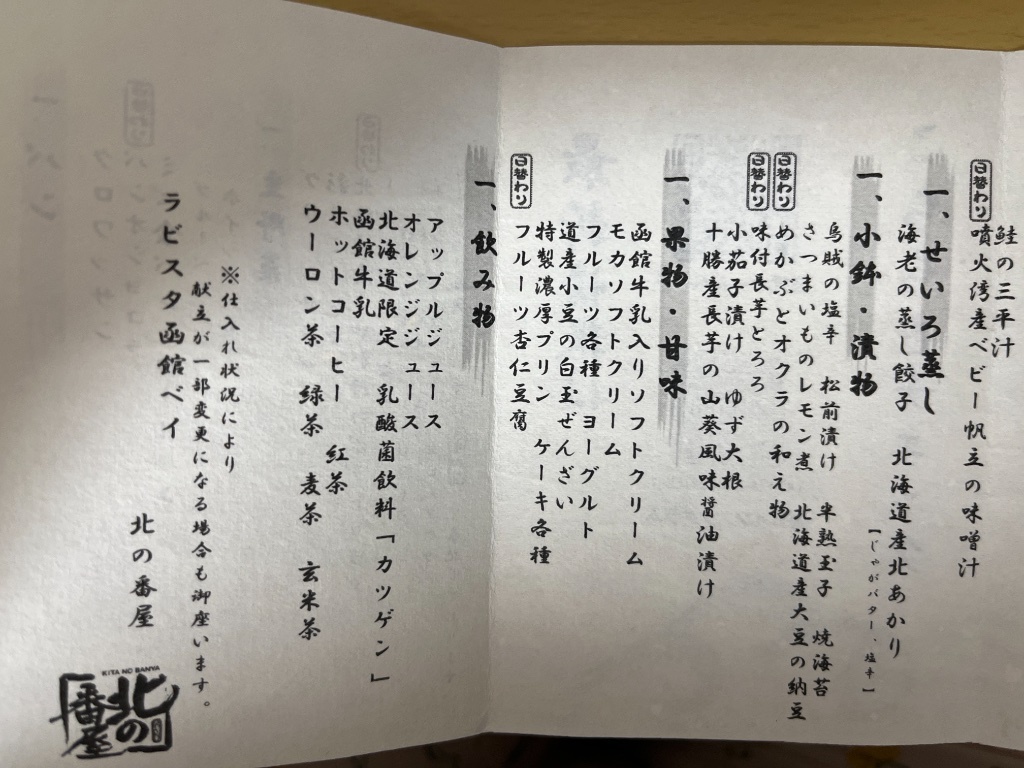 鮭の三平汁
日替わり 噴火湾産ベビー帆立の味噌汁
一、せいろ蒸し
海老の蒸し餃子 北海道産北あかり
【じゃがバター、塩辛】
一、小鉢・漬物
烏賊の塩辛 松前漬け 半熟玉子 焼海苔
さつまいものレモン煮 北海道産大豆の納豆
日替わり めかぶとオクラの和え物
日替わり 味付長芋とろろ
小茄子漬け ゆず大根
十勝産長芋の山葵風味醤油漬け
一、果物・甘味
函館牛乳入りソフトクリーム
モカソフトクリーム
フルーツ各種 ヨーグルト
道産小豆の白玉ぜんざい
特製濃厚プリン ケーキ各種
日替わり フルーツ杏仁豆腐
一、飲み物
アップルジュース
オレンジジュース
北海道限定 乳酸菌飲料「カツゲン」
函館牛乳
ホットコーヒー 紅茶
ウーロン茶 緑茶 麦茶 玄米茶
※仕入れ状況により
献立が一部変更になる場合も御座います。
ラビスタ函館ベイ
北の番屋
KITA NO BANYA
北の番屋